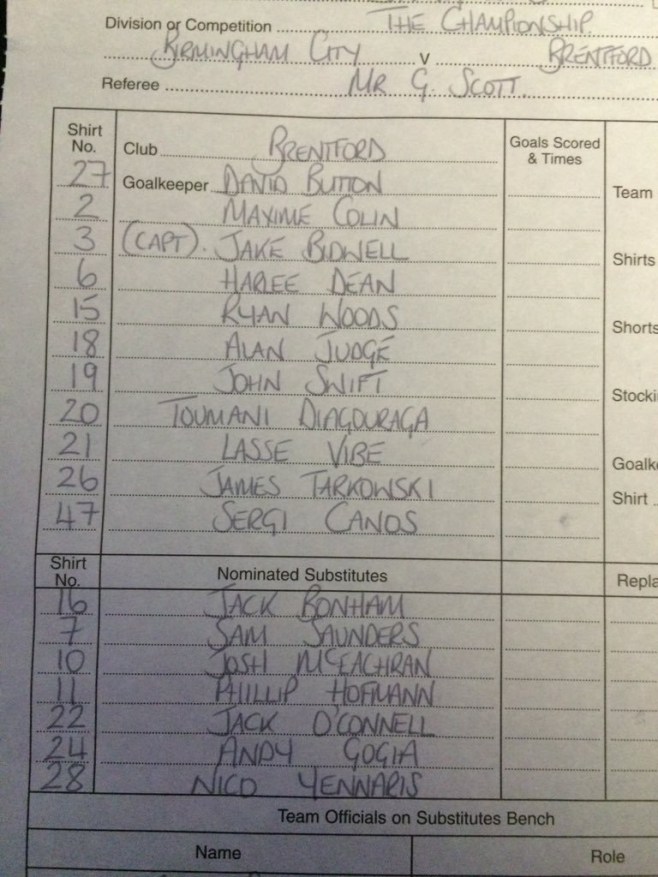 Division or Competition THE CHAMPIONSHIP.
BIRMINGHAM CITY v BRENTFORD
Referee MR G. SCOTT.
Shirt No. Club BRENTFORD Goals Scored & Times
27 Goalkeeper DAVID BUTTON Team
2 MAXIME COLIN
3 (CAPT). JAKE BIDWELL Shirts
6 HARLEE DEAN
15 RYAN WOODS Shorts
18 ALAN JUDGE
19 JOHN SWIFT Stocki
20 TOUMANI DIAGOURAGA
21 LASSE VIBE Goalk
26 JAMES TARKOWSKI Shirt
47 SERGI CANOS
Shirt No. Nominated Substitutes Repla
16 JACK BONHAM
7 SAM SAUNDERS
10 JOSH MCEACHRAN
11 PHILLIP HOFMANN
22 JACK O'CONNELL
24 ANDY GOGIA
28 NICO YENNARIS
Team Officials on Substitutes Bench
Name Role